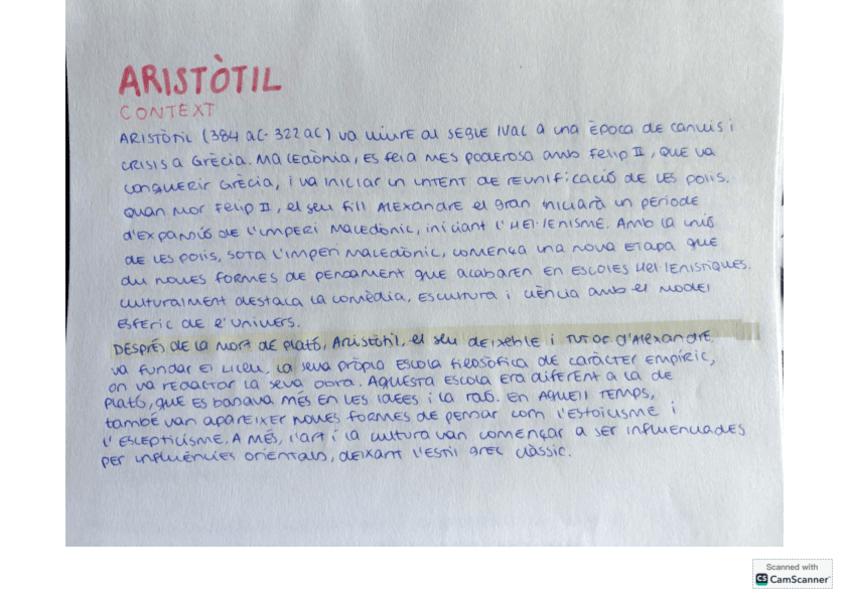 ARISTÒTIL
CONTEXT
ARISTÒTIL (384 aC- 322 aC) va viure al segle IV aC a una època de canvis i
crisis a Grècia. Macedònia, es feia més poderosa amb Felip II, que va
conquerir Grècia, i va iniciar un intent de reunificació de les polis.
Quan mor Felip II, el seu fill Alexandre el gran iniciarà un període
d'expansió de l'imperi Macedònic, iniciant l'Hel·lenisme. Amb la unió
de les polis, sota l'imperi Macedònic, comença una nova etapa que
du noves formes de pensament que acabaren en escoles Hel·lenístiques.
culturalment destaca la comèdia, escultura i ciència amb el model
esfèric de l'univers.
Després de la mort de Plató, Aristòtil, el seu deixeble i tutor d'Alexandre,
va fundar el Liceu, la seva pròpia escola filosòfica de caràcter empíric,
on va redactar la seva obra. Aquesta escola era diferent a la de
Plató, que es banava més en les idees i la raó. En aquell temps,
també van aparèixer noves formes de pensar com l'estoicisme i
l'escepticisme. A més, l'art i la cultura van començar a ser influenciades
per influències orientals, deixant l'estil grec clàssic.
Scanned with
CS CamScanner